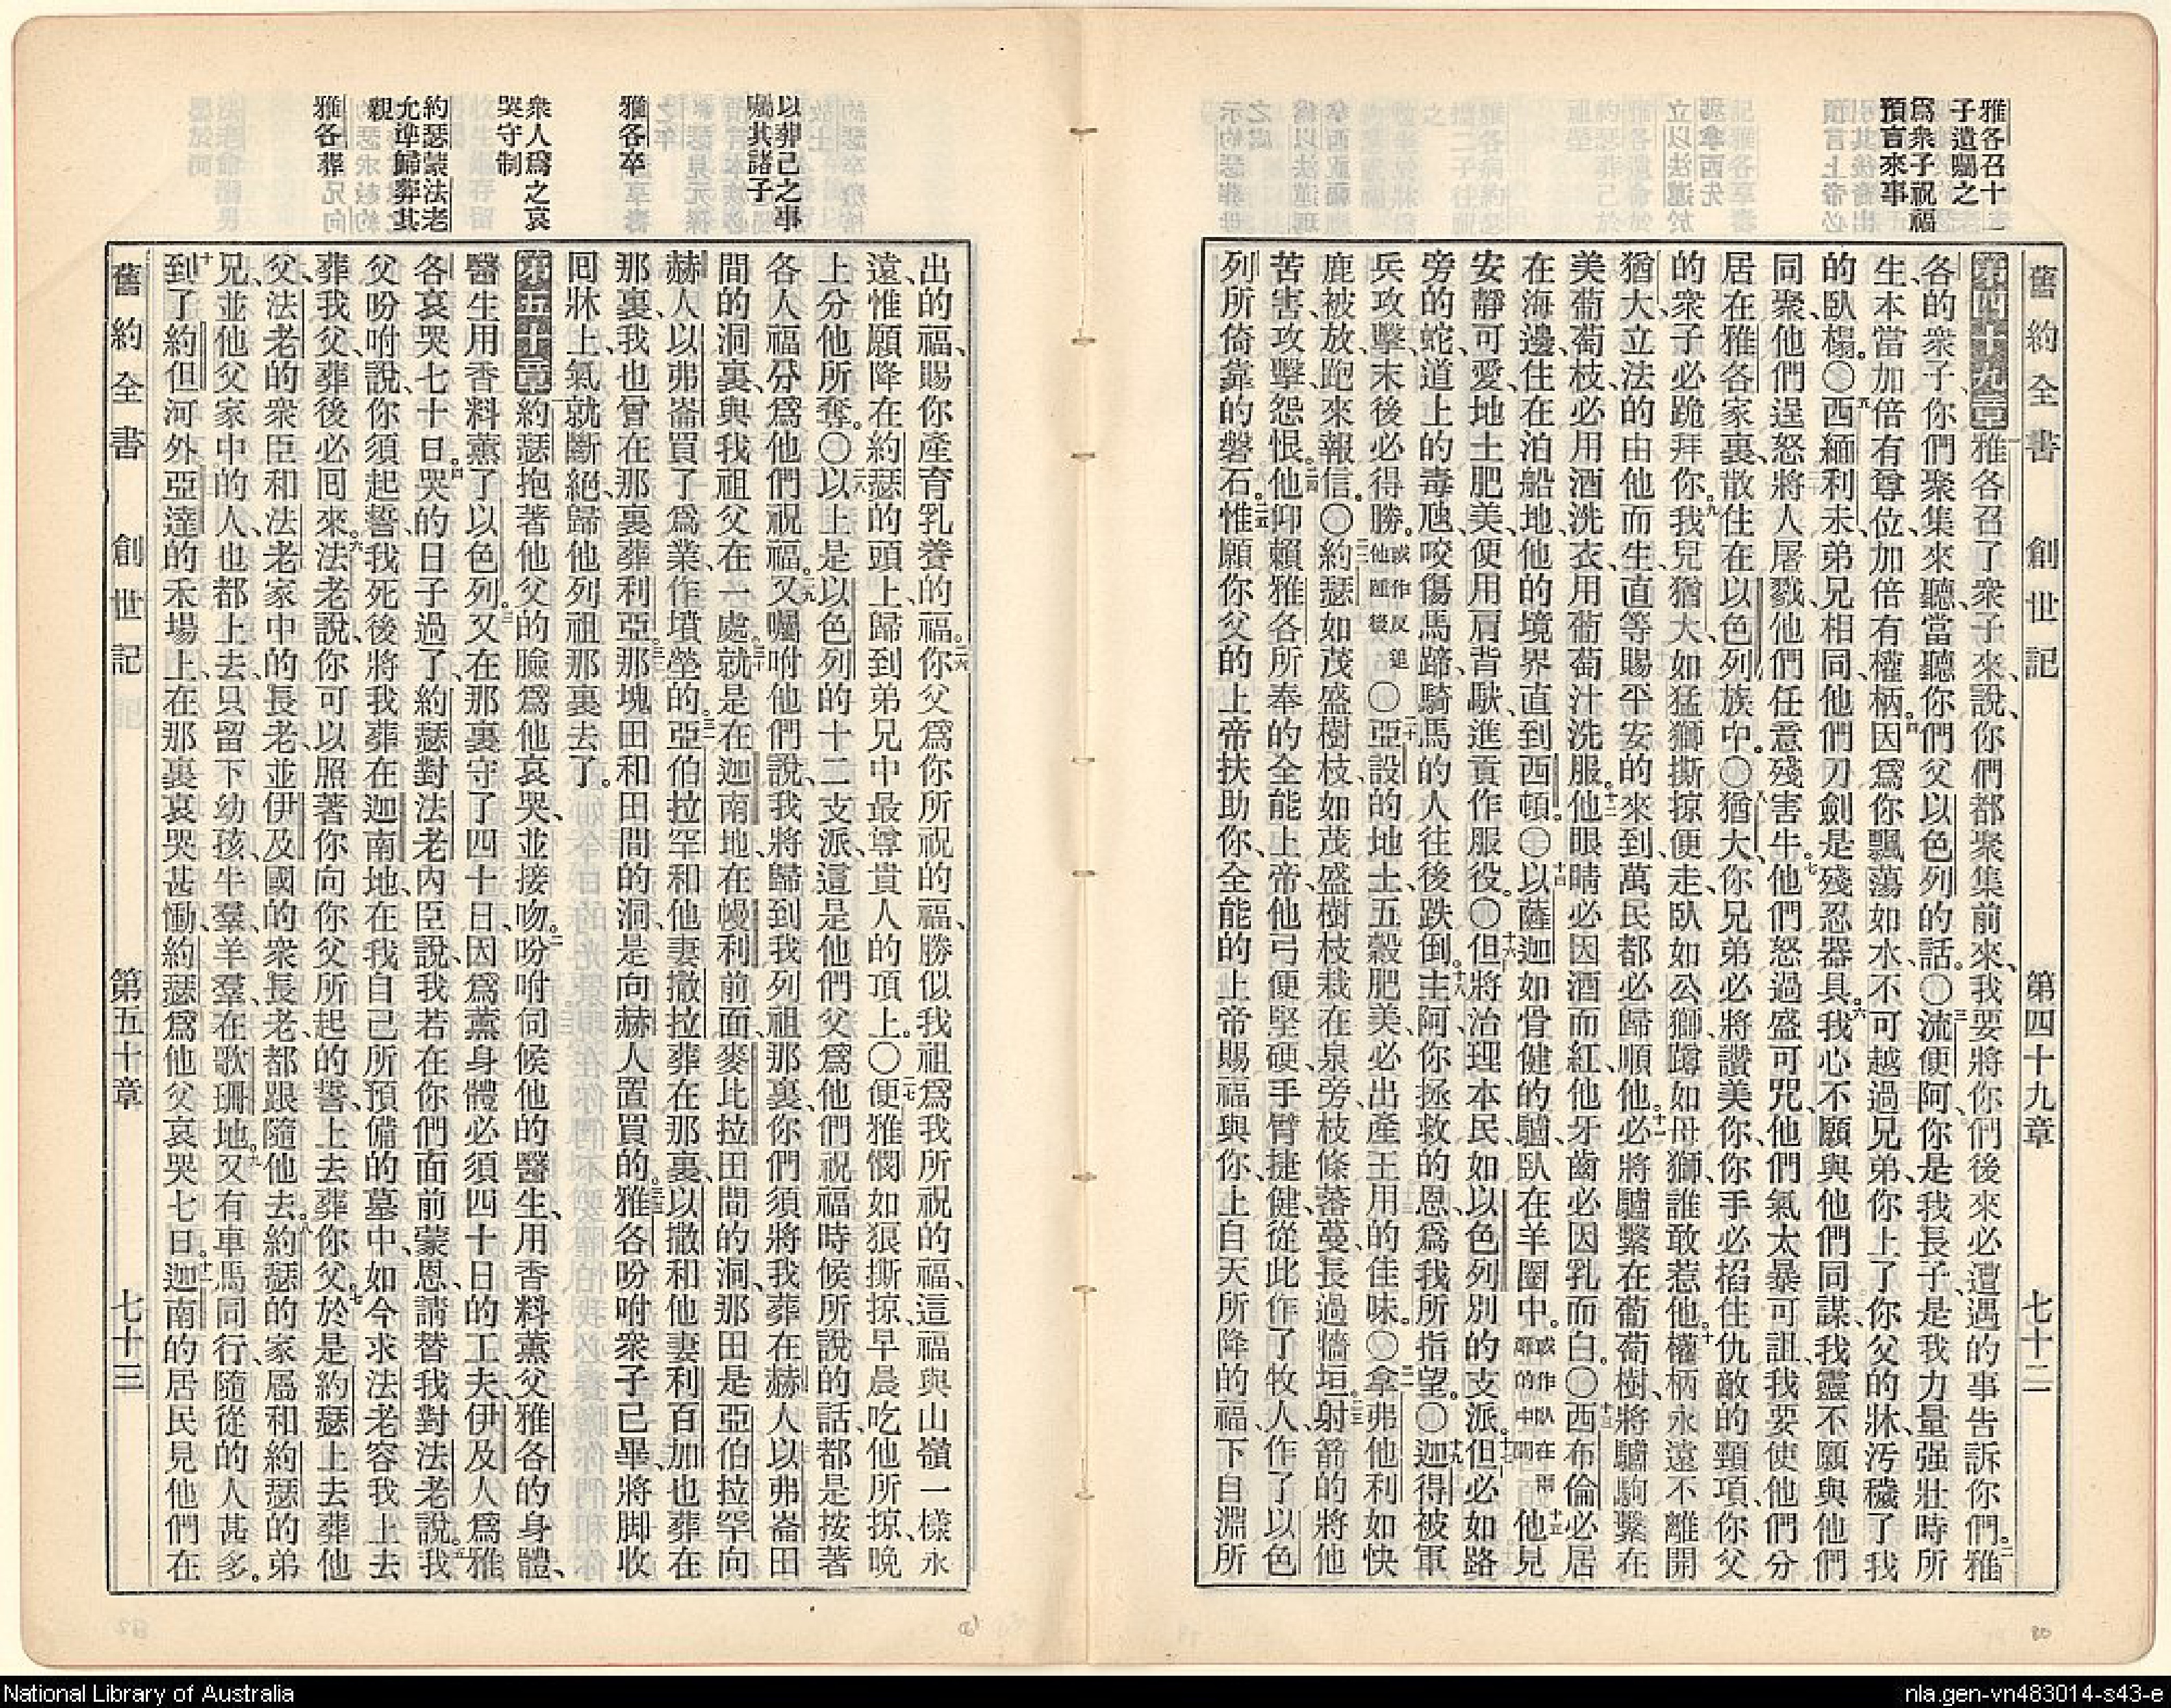 舊約全書 創世記 第四十九章 七十二
雅各召十
子遺囑之
爲衆子祝福
預言來事
第四十九章雅各召了衆子來、說、你們都聚集前來、我要將你們後來必遭遇的事告訴你們。二雅
各的衆子、你們聚集來聽、當聽你們父以色列的話。〇三流便阿、你是我長子、是我力量强壯時所
生、本當加倍有尊位、加倍有權柄。四因爲你飄蕩如水、不可越過兄弟、你上了你父的牀、汚穢了我
的臥榻。〇五西緬利未弟兄相同、他們刀劍是殘忍器具。六我心不願與他們同謀、我靈不願與他們
同聚、他們逞怒將人屠戮、他們任意殘害牛。七他們怒過盛可咒、他們氣太暴可詛、我要使他們分
居在雅各家裏、散住在以色列族中。〇八猶大、你兄弟必將讚美你、你手必掐住仇敵的頸項、你父
的衆子必跪拜你。九我兒猶大、如猛獅撕掠便走、臥如公獅、蹲如母獅、誰敢惹他。十權柄永遠不離開
猶大、立法的由他而生、直等賜平安的來到、萬民都必歸順他。十一必將驢繫在葡萄樹、將驢駒繫在
美葡萄枝、必用酒洗衣、用葡萄汁洗服。十二他眼睛必因酒而紅、他牙齒必因乳而白。〇十三西布倫必居
在海邊、住在泊船地、他的境界直到西頓。〇十四以薩迦如骨健的驢、臥在羊圈中。或作臥在兩驛的中間十五他見
安靜可愛、地土肥美、便用肩背馱、進貢作服役。〇十六但將治理本民、如以色列別的支派。十七但必如路
旁的蛇、道上的毒虺、咬傷馬蹄、騎馬的人往後跌倒。十八主阿、你拯救的恩、爲我所指望。〇十九迦得被軍
兵攻擊、末後必得勝。或作反追他踵後〇二十亞設的地土、五穀肥美、必出產王用的佳味。〇二一拿弗他利如快
鹿被放、跑來報信。〇二二約瑟如茂盛樹枝、如茂盛樹枝栽在泉旁、枝條蕃蔓、長過牆垣。二三射箭的將他
苦害、攻擊、怨恨。二四他仰賴雅各所奉的全能上帝、他弓便堅硬、手臂捷健、從此作了牧人、作了以色
列所倚靠的磐石。二五惟願你父的上帝扶助你、全能的上帝賜福與你、上自天所降的福、下自淵所
出的福、賜你產育乳養的福。二六你父爲你所祝的福、勝似我祖爲我所祝的福、這福與山嶺一樣永
遠、惟願降在約瑟的頭上、歸到弟兄中最尊貴人的頂上。〇二七便雅憫如狼撕掠、早晨吃他所掠、晚
上分他所奪。〇二八以上是以色列的十二支派、這是他們父爲他們祝福時候所說的話、都是按著
各人福分、爲他們祝福。二九又囑咐他們說、我將歸到我列祖那裏、你們須將我葬在赫人以弗崙田
間的洞裏、與我祖父在一處。三十就是在迦南地、在幔利前面、麥比拉田間的洞、那田是亞伯拉罕向
赫人以弗崙買了爲業、作墳塋的。三一亞伯拉罕和他妻撒拉葬在那裏、以撒和他妻利百加也葬在
那裏、我也曾在那裏葬利亞。三二那塊田和田間的洞、是向赫人置買的。三三雅各吩咐衆子已畢、將脚收
囘牀上、氣就斷絕、歸他列祖那裏去了。
第五十章約瑟抱著他父的臉、爲他哀哭、並接吻。二吩咐伺候他的醫生、用香料薰父雅各的身體、
醫生用香料薰了以色列。三又在那裏守了四十日、因爲薰身體必須四十日的工夫、伊及人爲雅
各哀哭七十日。四哭的日子過了、約瑟對法老內臣說、我若在你們面前蒙恩、請替我對法老說。五我
父吩咐說、你須起誓、我死後將我葬在迦南地、在我自己所預備的墓中、如今求法老容我上去
葬我父、葬後必囘來。六法老說、你可以照著你向你父所起的誓、上去葬你父。七於是約瑟上去葬他
父、法老的衆臣和法老家中的長老、並伊及國的衆長老、都跟隨他去。八約瑟的家屬和約瑟的弟
兄、並他父家中的人、也都上去、只留下幼孩、牛羣、羊羣、在歌珊地。九又有車馬同行、隨從的人甚多。
十到了約但河外亞達的禾場上、在那裏哀哭甚慟、約瑟爲他父哀哭七日。十一迦南的居民見他們在
以葬己之事
囑其諸子
雅各卒
衆人爲之哀
哭守制
約瑟蒙法老
允准歸葬其
親
雅各葬
舊約全書 創世記 第五十章 七十三
National Library of Australia
nla.gen-vn483014-s43-e